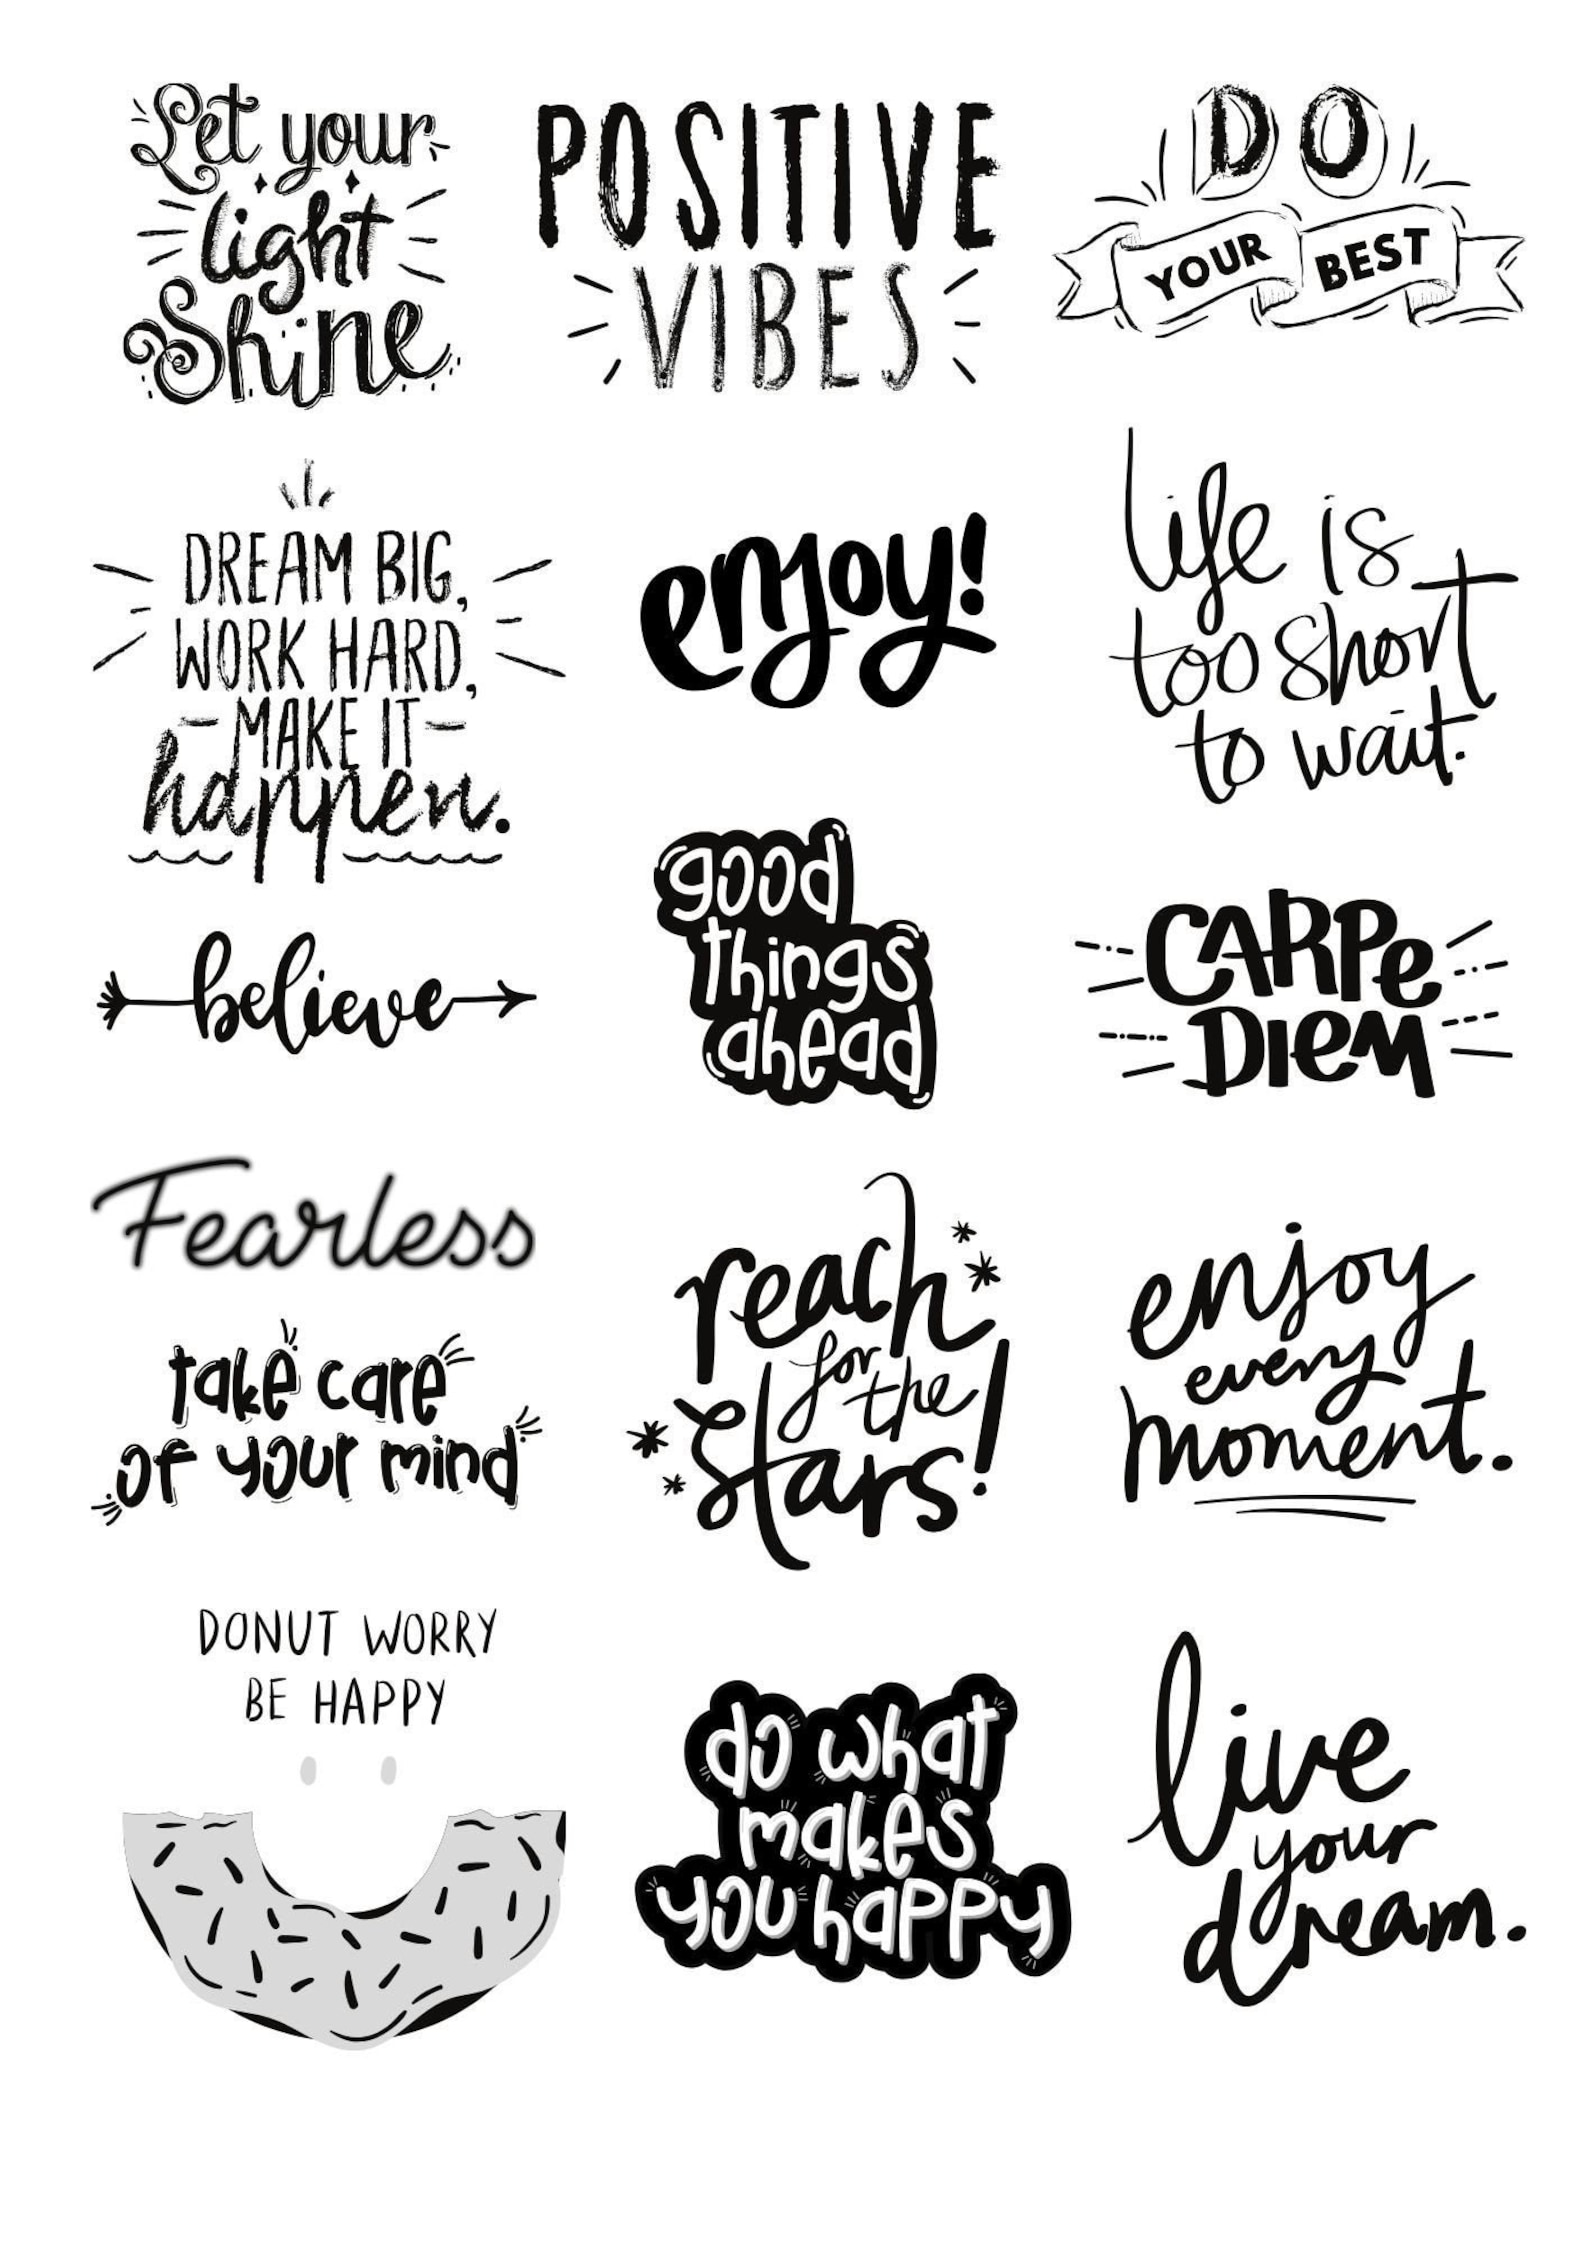 Let your
light
Shine
POSITIVE
VIBES
DO
YOUR BEST
DREAM BIG,
WORK HARD,
-MAKE IT-
happen.
enjoy!
life is
too short
to wait.
believe
good
things
ahead
CARPe
DIeM
Fearless
take care
of your mind
reach
for
the
stars!
enjoy
every
moment.
DONUT WORRY
BE HAPPY
do what
makes
you happy
live
your
dream.